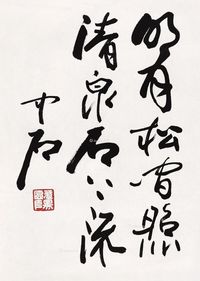 明月松間照
清泉石上流
中石